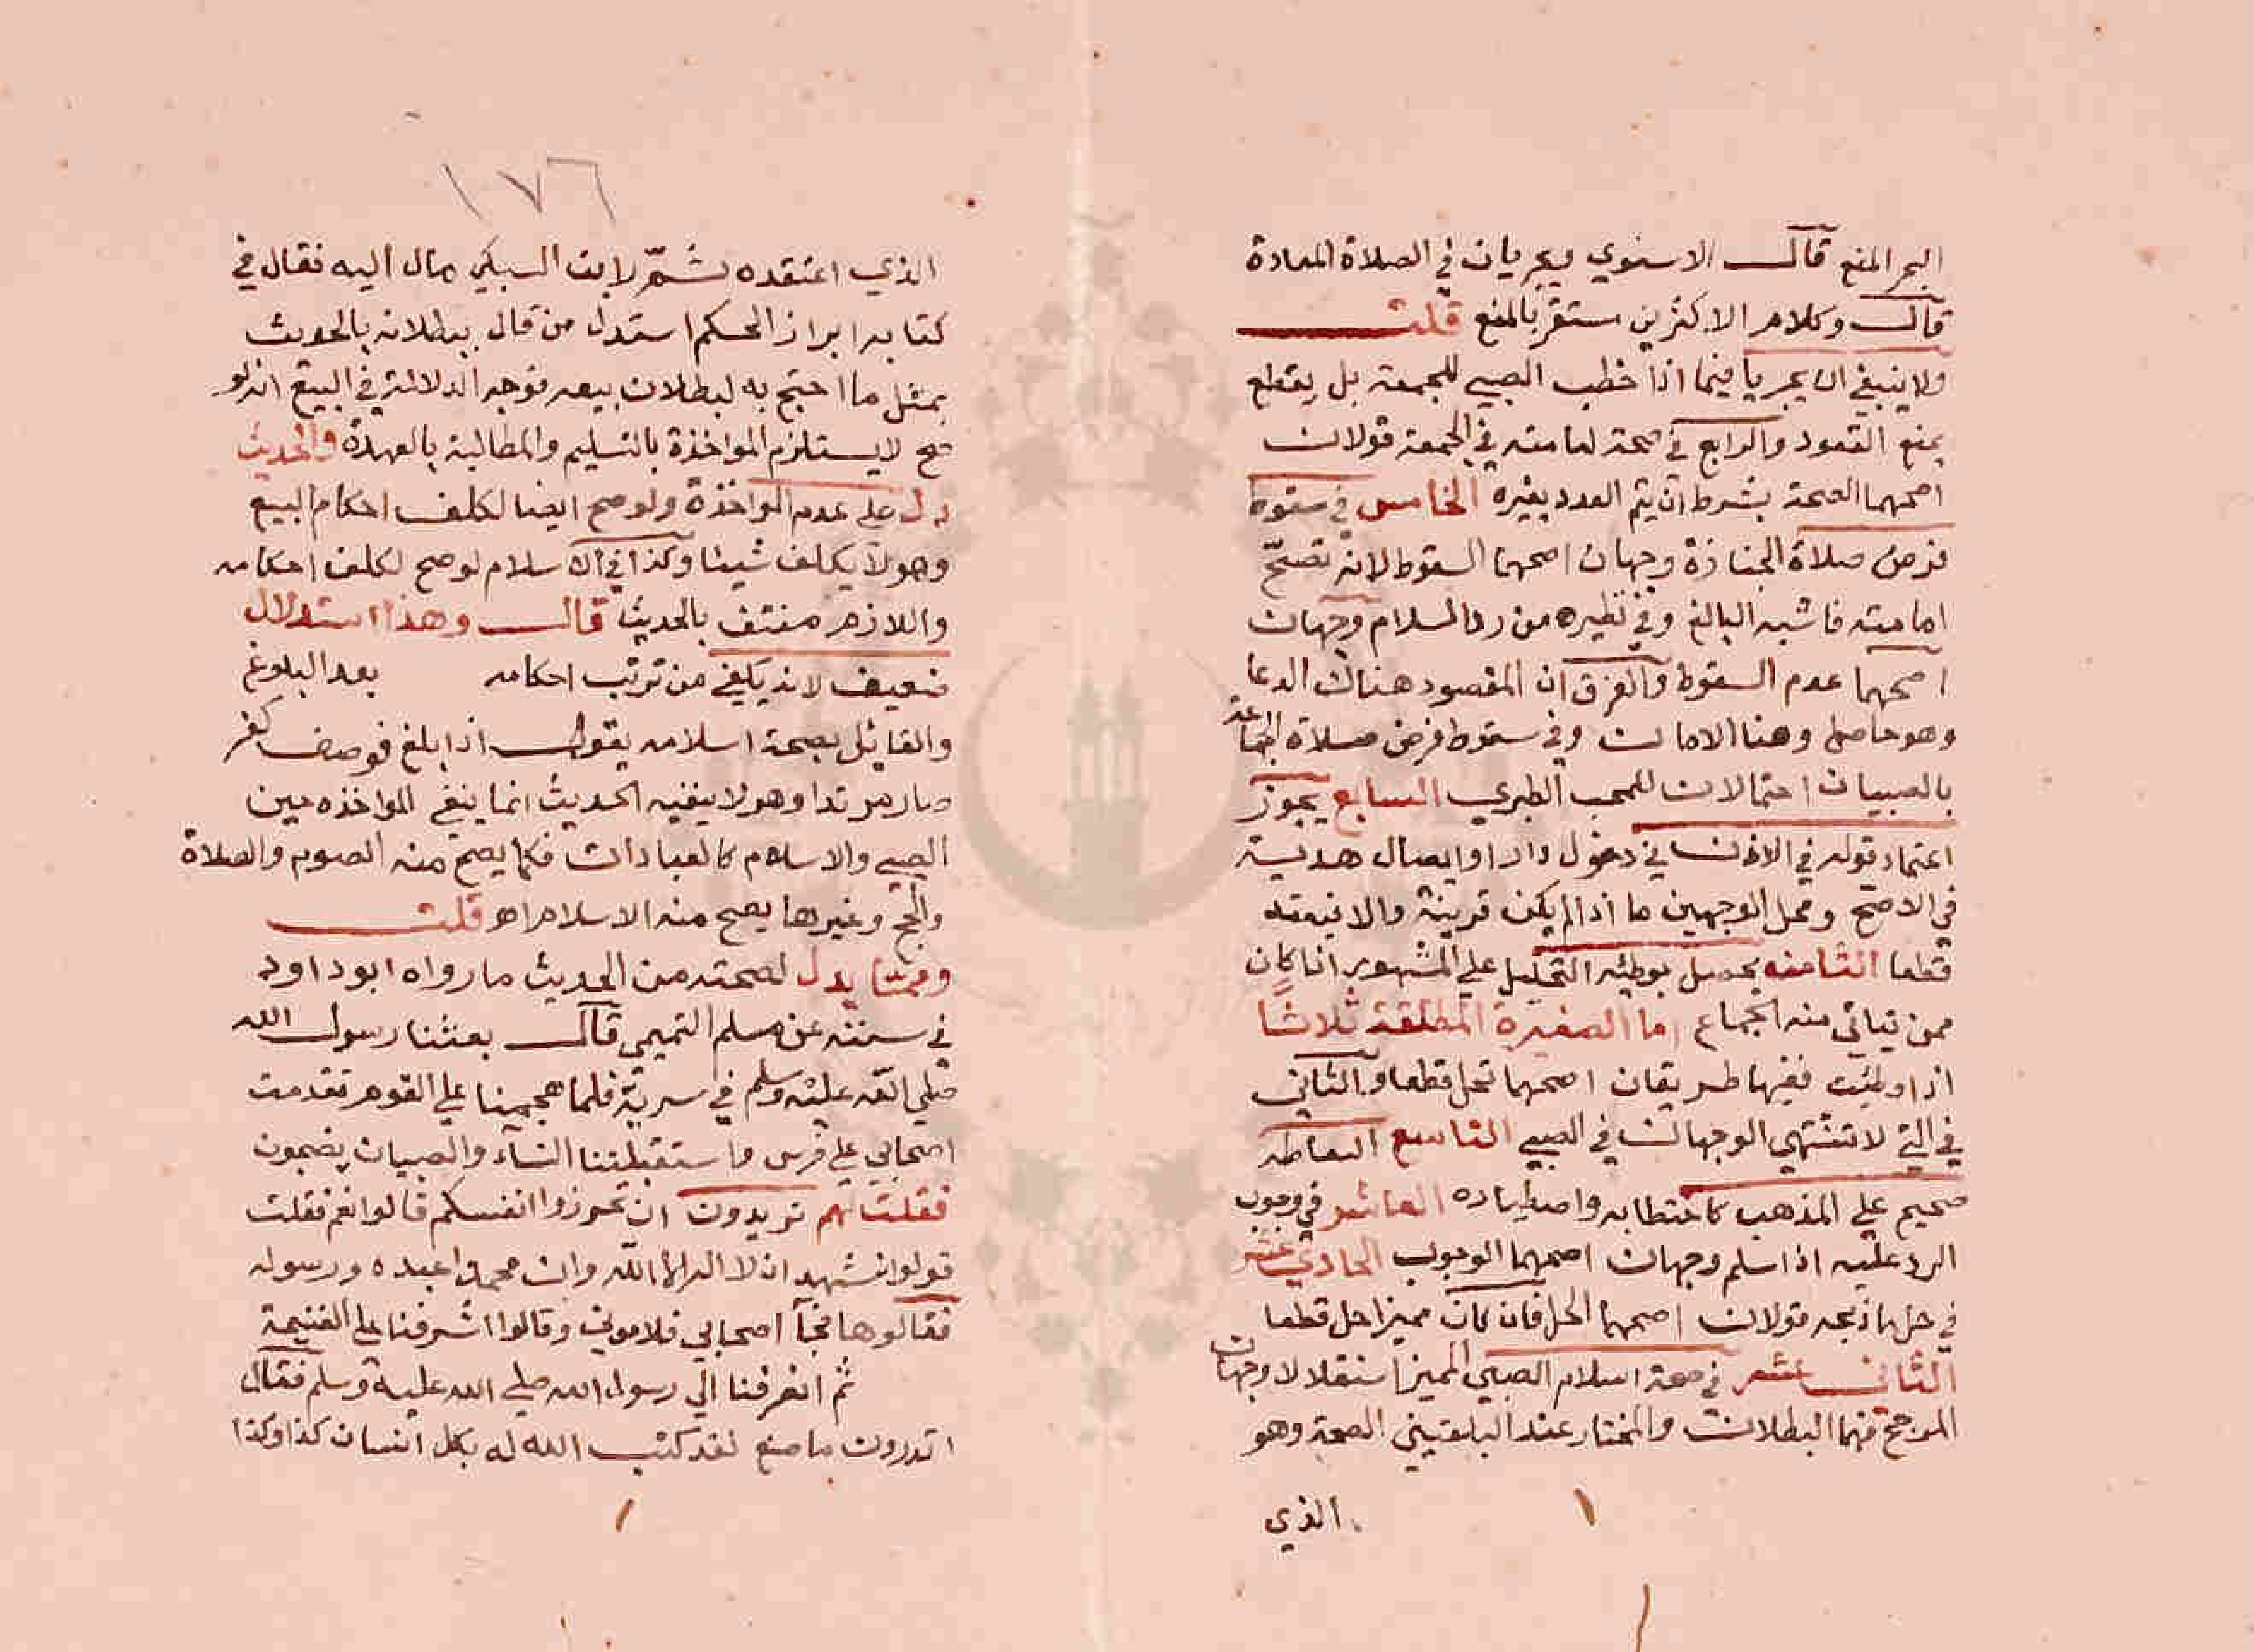 البحر المنع قال الاسنوي ويجريان في الصلاة المعادة
قال وكلام الاكثرين مستقر بالمنع قلت
ولا ينبغي ان يجريا فيما اذا خطب الصبي للجمعة بل يقطع
بمنع القعود والرابع في صحة امامته في الجمعة قولان
اصحهما الصحة بشرط ان يتم العدد بغيره الخامس في سقوط
فرض صلاة الجنازة وجهان اصحهما السقوط لانه تصح
امامته فاشبه البالغ وفي نظيره من رد السلام وجهان
اصحهما عدم السقوط والفرق ان المقصود هناك الدعا
وهو حاصل وهنا الامان وفي سقوط فرض صلاة الجماعة
بالصبيان احتمالان للمحب الطبري السابع يجوز
اعتماد قوله في الاذن في دخول دار او ايصال هدية
في الاصح ومحل الوجهين ما اذا لم يكن قرينة والا فيعتمد
قطعا الثامنه يحصل بوطئه التحليل علي المشهور اذا كان
ممن يتاتي منه الجماع اما الصغيرة المطلقة ثلاثا
اذا وطئت ففيها طريقان اصحهما تحل قطعا والثاني
في التي لا تشتهي الوجهان في الصبي التاسع التعاطه
صحيح علي المذهب كاحتطابه واصطياده العاشر في وجوب
الرد عليه اذا سلم وجهان اصحهما الوجوب الحادي عشر
في حل ما ذبحه قولان اصحهما الحل فان كان مميزا حل قطعا
الثاني عشر في صحة اسلام الصبي المميز استقلالا وجهان
المرجح منهما البطلان والمختار عند البلقيني الصحة وهو
الذي
١٧٦
الذي اعتقده ثم ابن السبكي مال اليه فقال في
كتابه ابراز الحكم استدل من قال ببطلانه بالحديث
بمثل ما احتج به لبطلان بيعه فوجه الدلالة في البيع انه لو
صح لا يستلزم المواخذة بالتسليم والمطالبة بالعهدة والحديث
دل علي عدم المواخذة ولو صح ايضا لكلف احكام البيع
وهو لا يكلف شيئا وكذا في الاسلام لو صح لكلف احكامه
واللازم منتف بالحديث قال وهذا استدلال
ضعيف لانه يكفي من ترتب احكامه بعد البلوغ
والقائل بصحة اسلامه يقول اذا بلغ فوصف كفر
صار مرتدا وهو لا ينفيه الحديث انما ينفي المواخذه حين
الصبي والاسلام كالعبادات فكما يصح منه الصوم والصلاة
والحج وغيرها يصح منه الاسلام اه قلت
ومما يدل لصحته من الحديث ما رواه ابو داود
في سننه عن مسلم التميمي قال بعثنا رسول الله
صلي الله عليه وسلم في سرية فلما هجمنا علي القوم تقدمت
اصحابي علي فرس فاستقبلتنا النساء والصبيان يضجون
فقلت لهم تريدون ان تحوزوا انفسكم قالوا نعم فقلت
قولوا نشهد ان لا اله الا الله وان محمدا عبده ورسوله
فقالوها فجآ اصحابي فلاموني وقالوا اشرفنا علي الغنيمة
ثم انصرفنا الي رسول الله صلي الله عليه وسلم فقال
اتدرون ما صنع لقد كتب الله له بكل انسان كذا وكذا